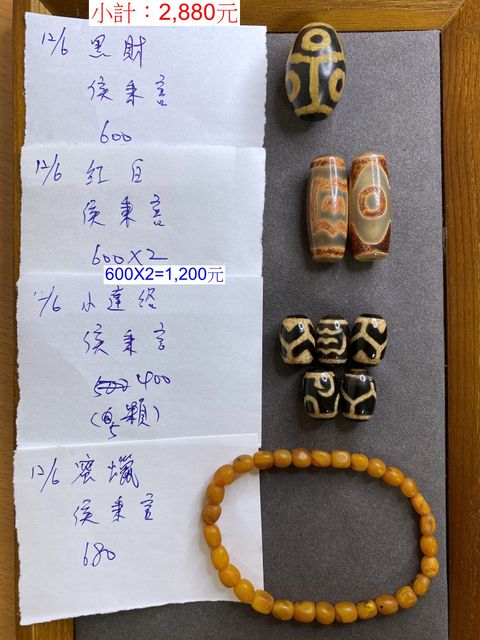 小計：2,880元
12/6 黑財
侯秉言
600
12/6 紅白
侯秉言
600X2
600X2=1,200元
12/6 小達洛
侯秉言
400
(5顆)
12/6 蜜蠟
侯秉言
680